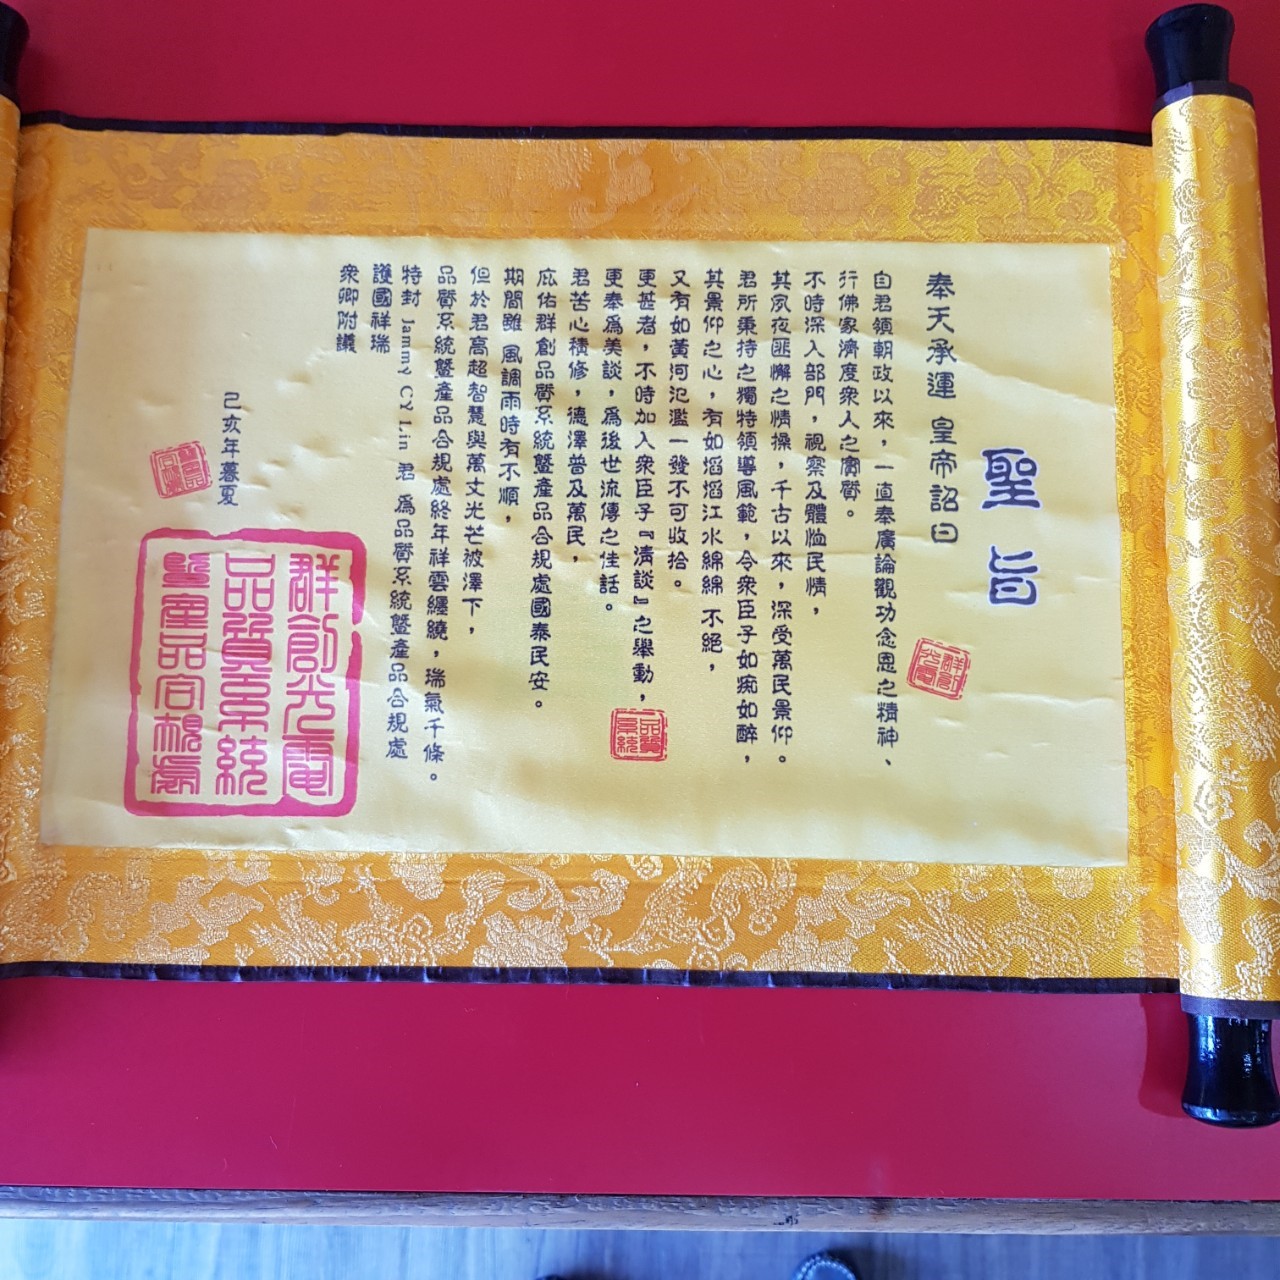 聖旨
奉天承運 皇帝詔曰
自君領朝政以來，一直奉廣論觀功念恩之精神、
行佛家濟度眾人之實質。
不時深入部門，視察及體恤民情，
其夙夜匪懈之情操，千古以來，深受萬民景仰。
君所秉持之獨特領導風範，令眾臣子如痴如醉，
其景仰之心，有如滔滔江水綿綿 不絕，
又有如黃河氾濫一發不可收拾。
更甚者，不時加入眾臣子『清談』之舉動，
更奉為美談，為後世流傳之佳話。
君苦心積修，德澤普及萬民，
庇佑群創品質系統暨產品合規處國泰民安。
期間雖 風調雨時有不順，
但於君高超智慧與萬丈光芒被澤下，
品質系統暨產品合規處終年祥雲纏繞，瑞氣千條。
特封 Jammy CY Lin 君 為品質系統暨產品合規處
護國祥瑞
眾卿附議
己亥年暮夏
群創光電
品質系統
群創光電
品質系統
暨產品合規處